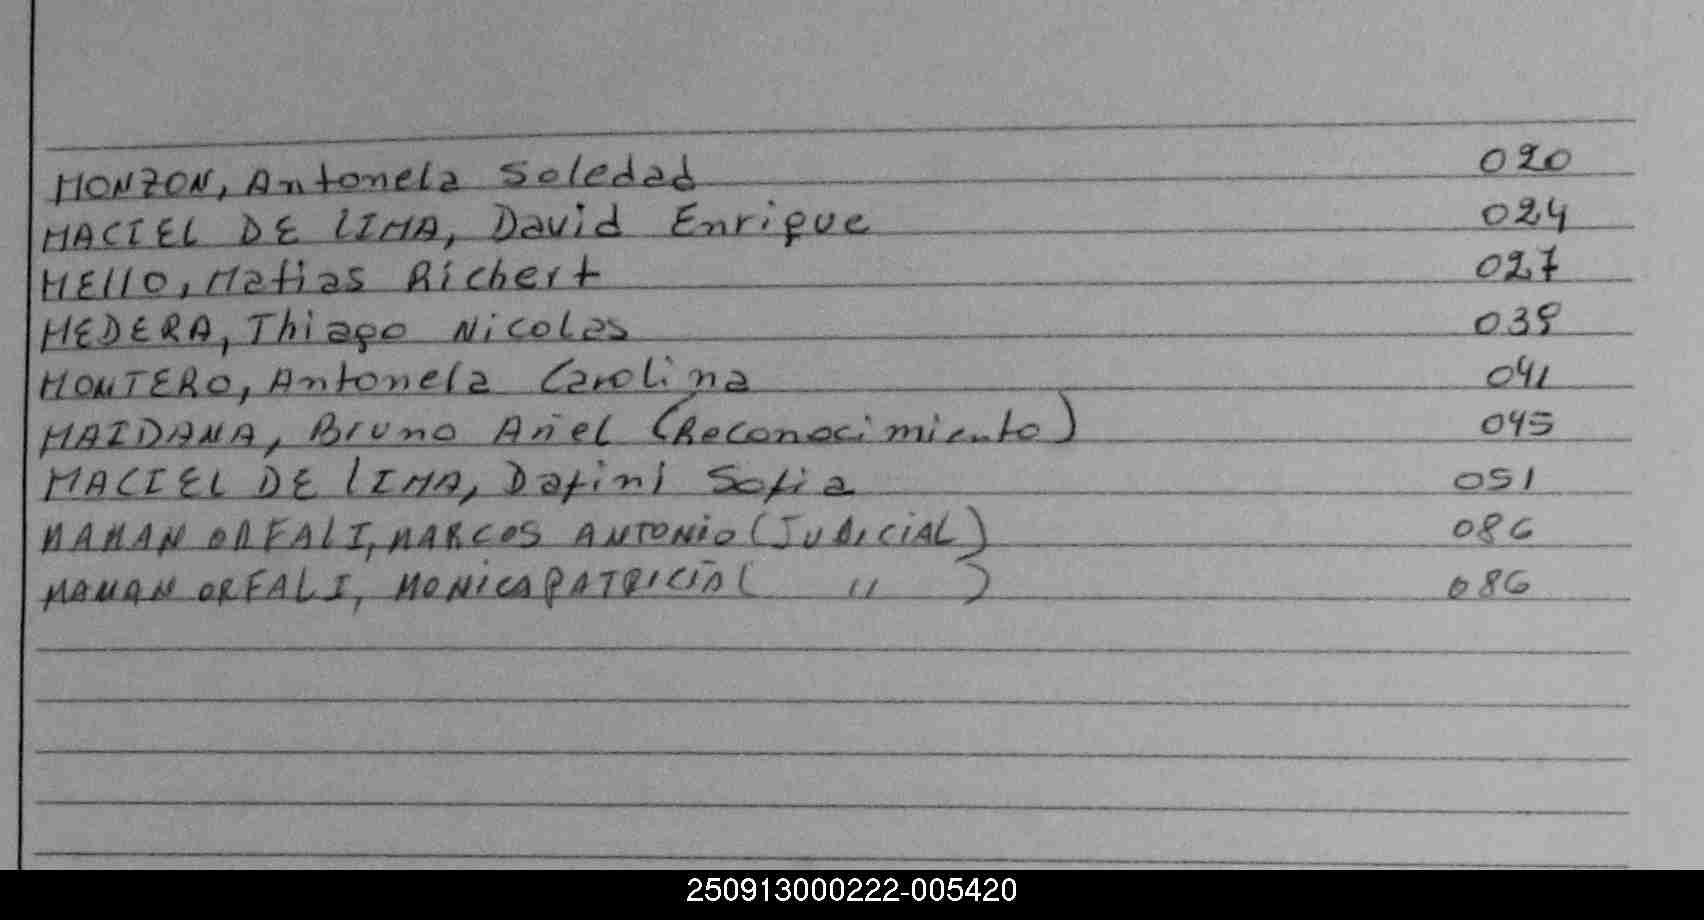 MONZON, Antonela Soledad 020
MACIEL DE LIMA, David Enrique 024
MELLO, Matias Richert 027
MEDERA, Thiago Nicolas 039
MONTERO, Antonela Carolina 041
MAIDANA, Bruno Ariel (Reconocimiento) 045
MACIEL DE LIMA, Dafini Sofia 051
MAMAN ORFALI, MARCOS ANTONIO (JUDICIAL) 086
MAMAN ORFALI, MONICA PATRICIA ( " ) 086
250913000222-005420